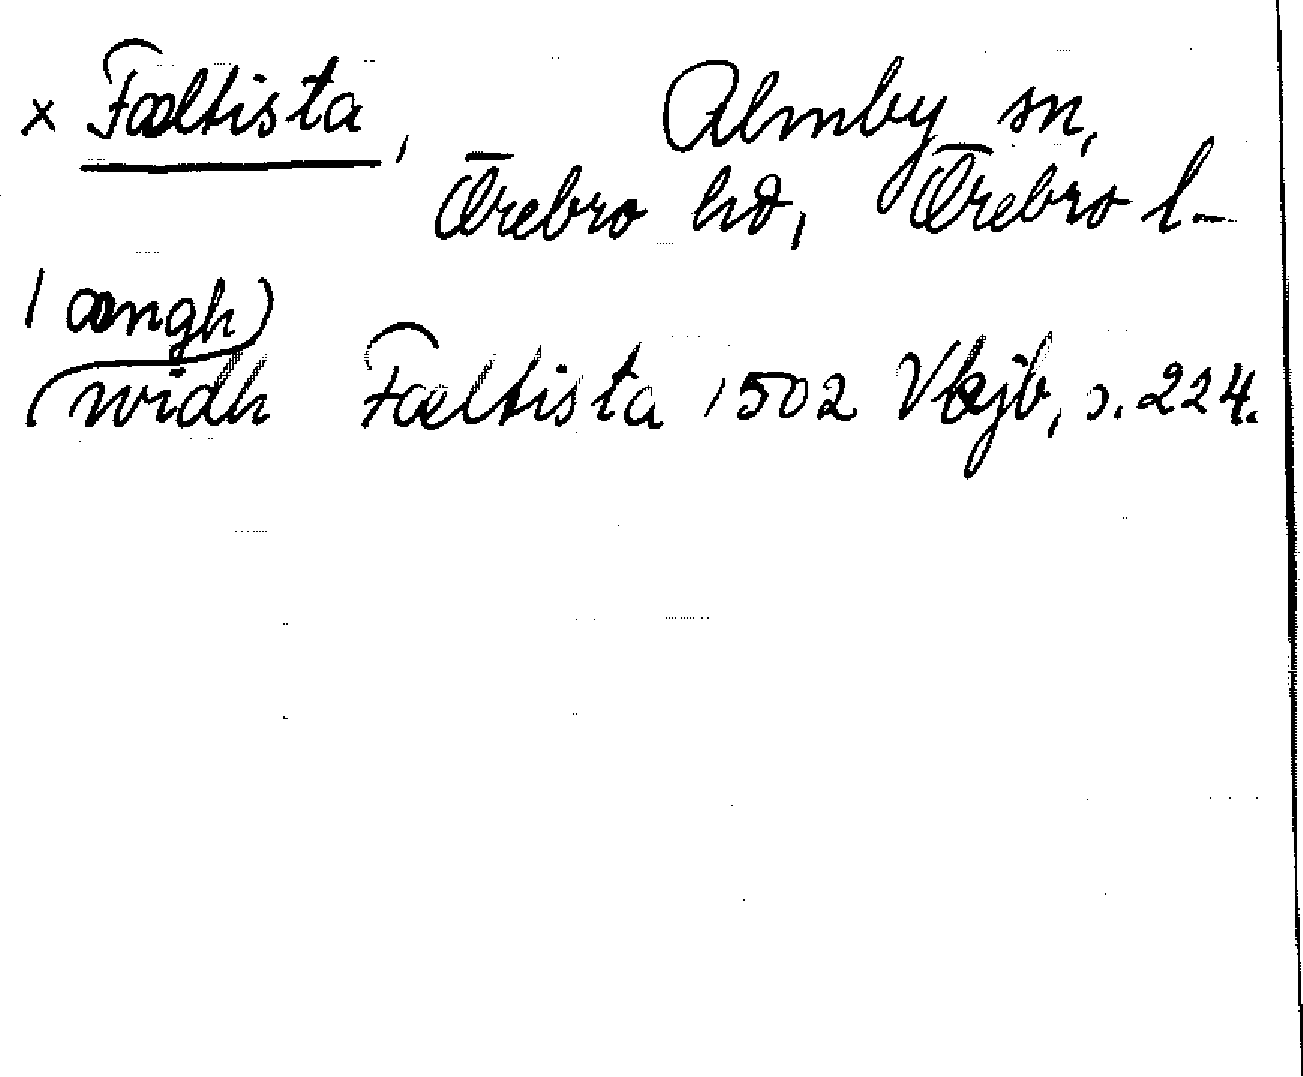 × Fæltista, Almby sn,
Örebro hd, Örebro l-
(ængh)
(widh Fæltista 1502 Vkjb, s. 224.